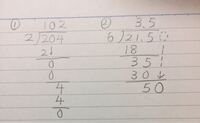 ① 102
2)204
2↓
0
0
4
4
0
② 3.5
6)21.5
18
35
30↓
50